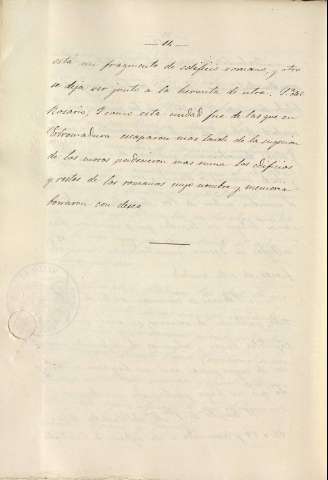 — 14 —
está un fragmento de edificio romano, y otro
se deja ver junto a la hermita de ntra. Sra. del
Rosario, I como esta ciudad fue de las que en
Estremadura escaparon mas tarde de la sugecion
de los moros pudieron mas summa los edificios
y restos de los romanos cuyo nombre y memoria
borraron con deseo